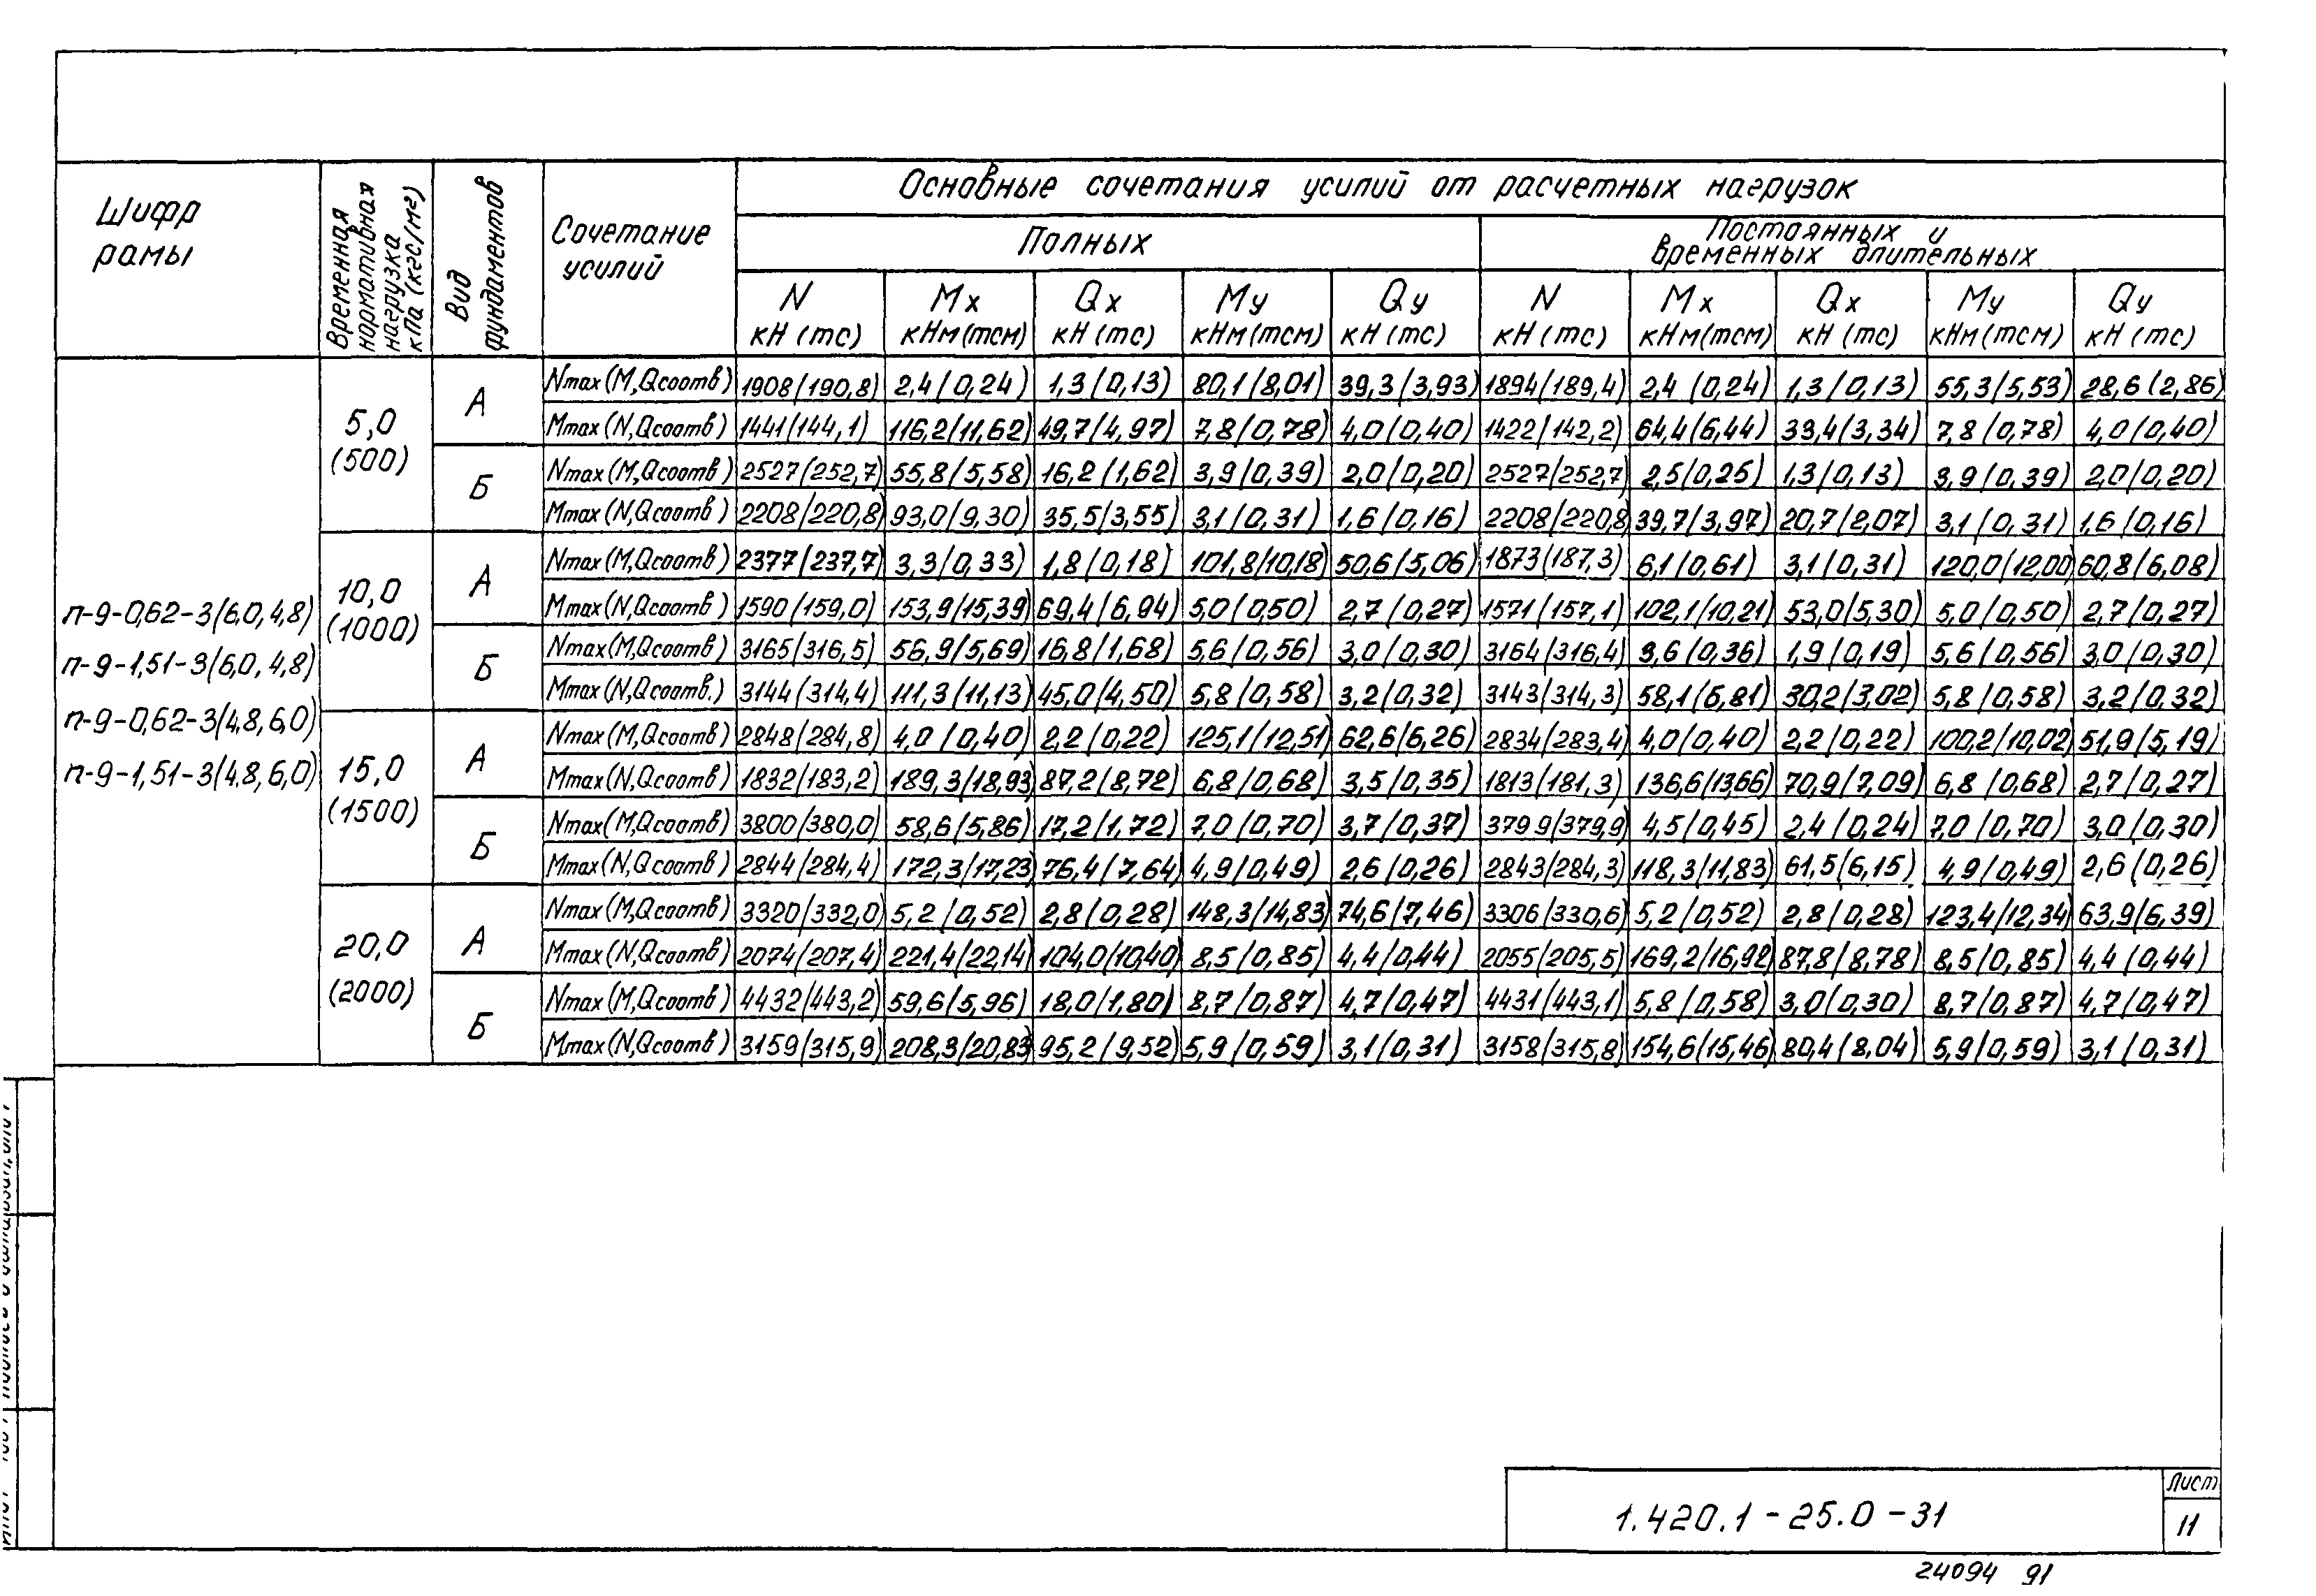 Шифр рамы
Временная нормативная нагрузка кПа (кгс/м²)
Вид фундаментов
Сочетание усилий
Основные сочетания усилий от расчетных нагрузок
Полных
Постоянных и временных длительных
N кН (тс) Mx кНм(тсм) Qx кН (тс) My кНм(тсм) Qy кН (тс) N кН (тс) Mx кНм(тсм) Qx кН (тс) My кНм(тсм) Qy кН (тс)
п-9-0,62-3(6,0, 4,8)
п-9-1,51-3(6,0, 4,8)
п-9-0,62-3(4,8, 6,0)
п-9-1,51-3(4,8, 6,0)
5,0 (500)
А
Nmax(M,Qсоотв) 1908(190,8) 2,4(0,24) 1,3(0,13) 80,1(8,01) 39,3(3,93) 1894(189,4) 2,4(0,24) 1,3(0,13) 55,3(5,53) 28,6(2,86)
Mmax(N,Qсоотв) 1441(144,1) 116,2(11,62) 49,7(4,97) 7,8(0,78) 4,0(0,40) 1422(142,2) 64,4(6,44) 33,4(3,34) 7,8(0,78) 4,0(0,40)
Б
Nmax(M,Qсоотв) 2527(252,7) 55,8(5,58) 16,2(1,62) 3,9(0,39) 2,0(0,20) 2527(252,7) 2,5(0,25) 1,3(0,13) 3,9(0,39) 2,0(0,20)
Mmax(N,Qсоотв) 2208(220,8) 93,0(9,30) 35,5(3,55) 3,1(0,31) 1,6(0,16) 2208(220,8) 39,7(3,97) 20,7(2,07) 3,1(0,31) 1,6(0,16)
10,0 (1000)
А
Nmax(M,Qсоотв) 2377(237,7) 3,3(0,33) 1,8(0,18) 101,8(10,18) 50,6(5,06) 1873(187,3) 6,1(0,61) 3,1(0,31) 120,0(12,00) 60,8(6,08)
Mmax(N,Qсоотв) 1590(159,0) 153,9(15,39) 69,4(6,94) 5,0(0,50) 2,7(0,27) 1571(157,1) 102,1(10,21) 53,0(5,30) 5,0(0,50) 2,7(0,27)
Б
Nmax(M,Qсоотв) 3165(316,5) 56,9(5,69) 16,8(1,68) 5,6(0,56) 3,0(0,30) 3164(316,4) 3,6(0,36) 1,9(0,19) 5,6(0,56) 3,0(0,30)
Mmax(N,Qсоотв.) 3144(314,4) 111,3(11,13) 45,0(4,50) 5,8(0,58) 3,2(0,32) 3143(314,3) 58,1(5,81) 30,2(3,02) 5,8(0,58) 3,2(0,32)
15,0 (1500)
А
Nmax(M,Qсоотв) 2848(284,8) 4,0(0,40) 2,2(0,22) 125,1(12,51) 62,6(6,26) 2834(283,4) 4,0(0,40) 2,2(0,22) 100,2(10,02) 51,9(5,19)
Mmax(N,Qсоотв) 1832(183,2) 189,3(18,93) 87,2(8,72) 6,8(0,68) 3,5(0,35) 1813(181,3) 136,6(13,66) 70,9(7,09) 6,8(0,68) 2,7(0,27)
Б
Nmax(M,Qсоотв) 3800(380,0) 58,6(5,86) 17,2(1,72) 7,0(0,70) 3,7(0,37) 3799(379,9) 4,5(0,45) 2,4(0,24) 7,0(0,70) 3,0(0,30)
Mmax(N,Qсоотв) 2844(284,4) 172,3(17,23) 76,4(7,64) 4,9(0,49) 2,6(0,26) 2843(284,3) 118,3(11,83) 61,5(6,15) 4,9(0,49) 2,6(0,26)
20,0 (2000)
А
Nmax(M,Qсоотв) 3320(332,0) 5,2(0,52) 2,8(0,28) 148,3(14,83) 74,6(7,46) 3306(330,6) 5,2(0,52) 2,8(0,28) 123,4(12,34) 63,9(6,39)
Mmax(N,Qсоотв) 2074(207,4) 221,4(22,14) 104,0(10,40) 8,5(0,85) 4,4(0,44) 2055(205,5) 169,2(16,92) 87,8(8,78) 8,5(0,85) 4,4(0,44)
Б
Nmax(M,Qсоотв) 4432(443,2) 59,6(5,96) 18,0(1,80) 8,7(0,87) 4,7(0,47) 4431(443,1) 5,8(0,58) 3,0(0,30) 8,7(0,87) 4,7(0,47)
Mmax(N,Qсоотв) 3159(315,9) 208,3(20,83) 95,2(9,52) 5,9(0,59) 3,1(0,31) 3158(315,8) 154,6(15,46) 80,4(8,04) 5,9(0,59) 3,1(0,31)
1.420.1-25.0-31
Лист
11
24094 91